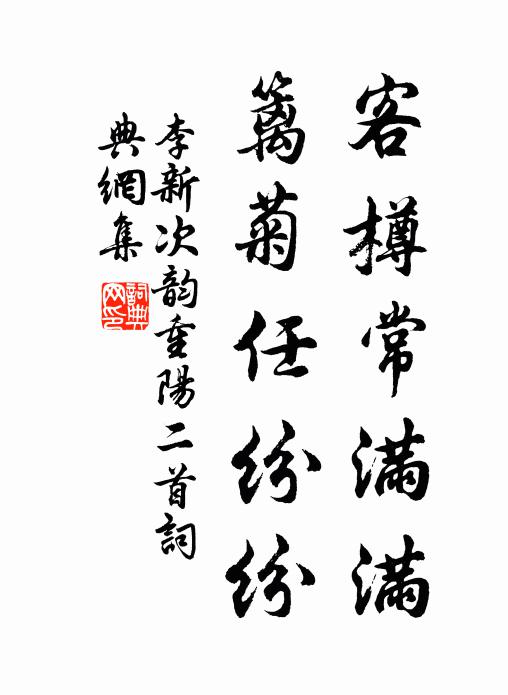 客樽常滿滿
籬菊任紛紛
李新次韵重陽二首詞
典網集
詞典網印